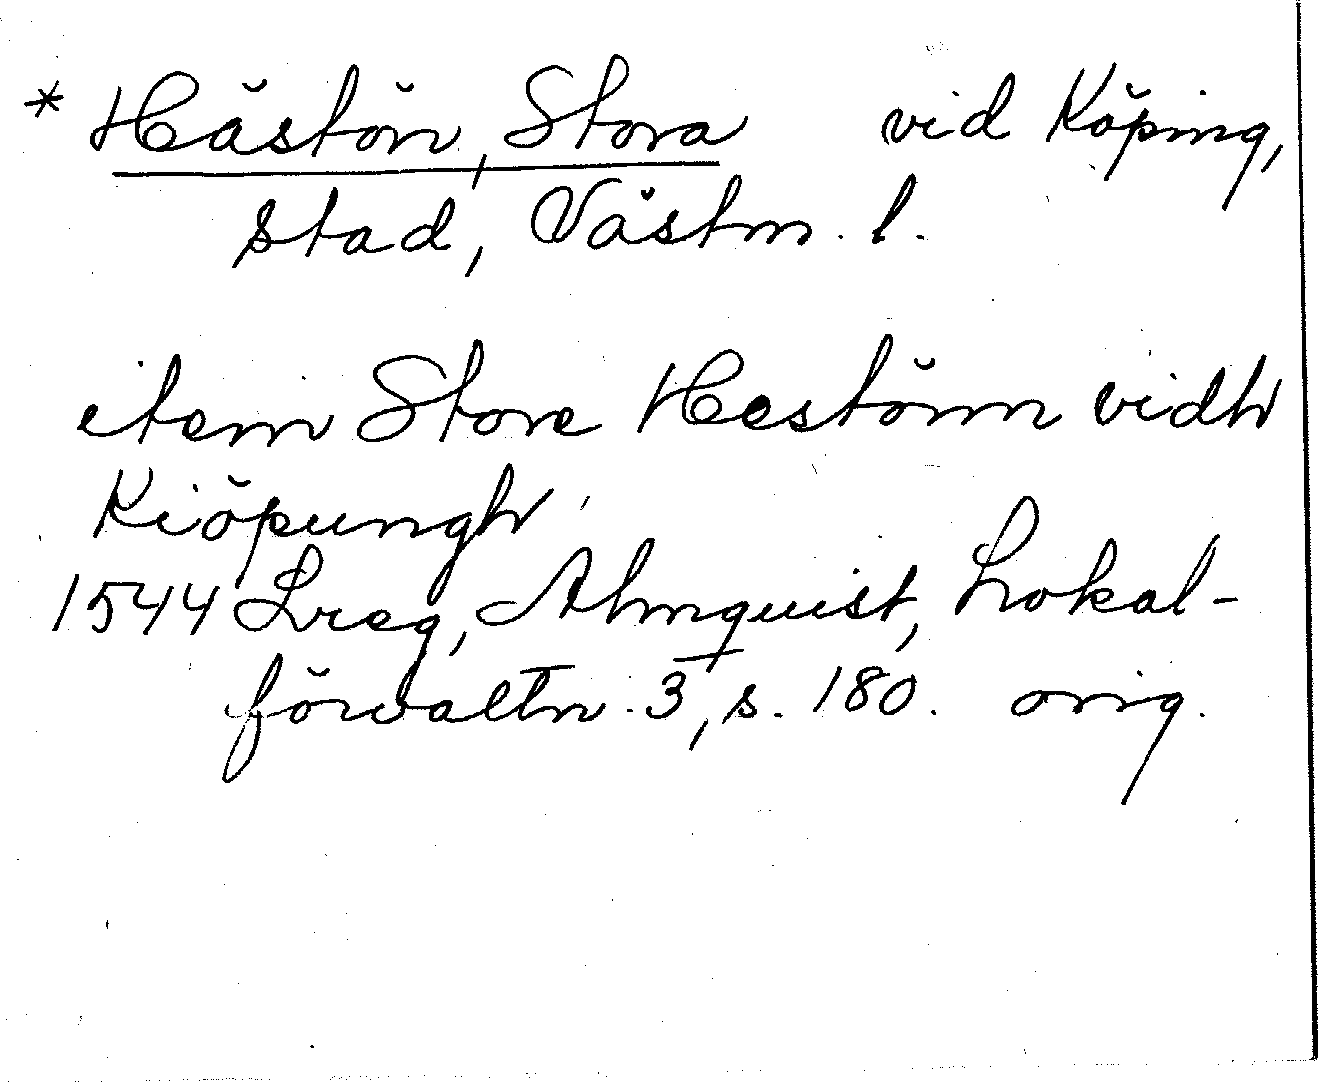 * Hästön, Stora vid Köping,
stad, Västm. l.
item Store Hestönn vidh
Kiöpungh
1544 Lreg, Almquist, Lokal-
förvaltn. 3, s. 180. orig.